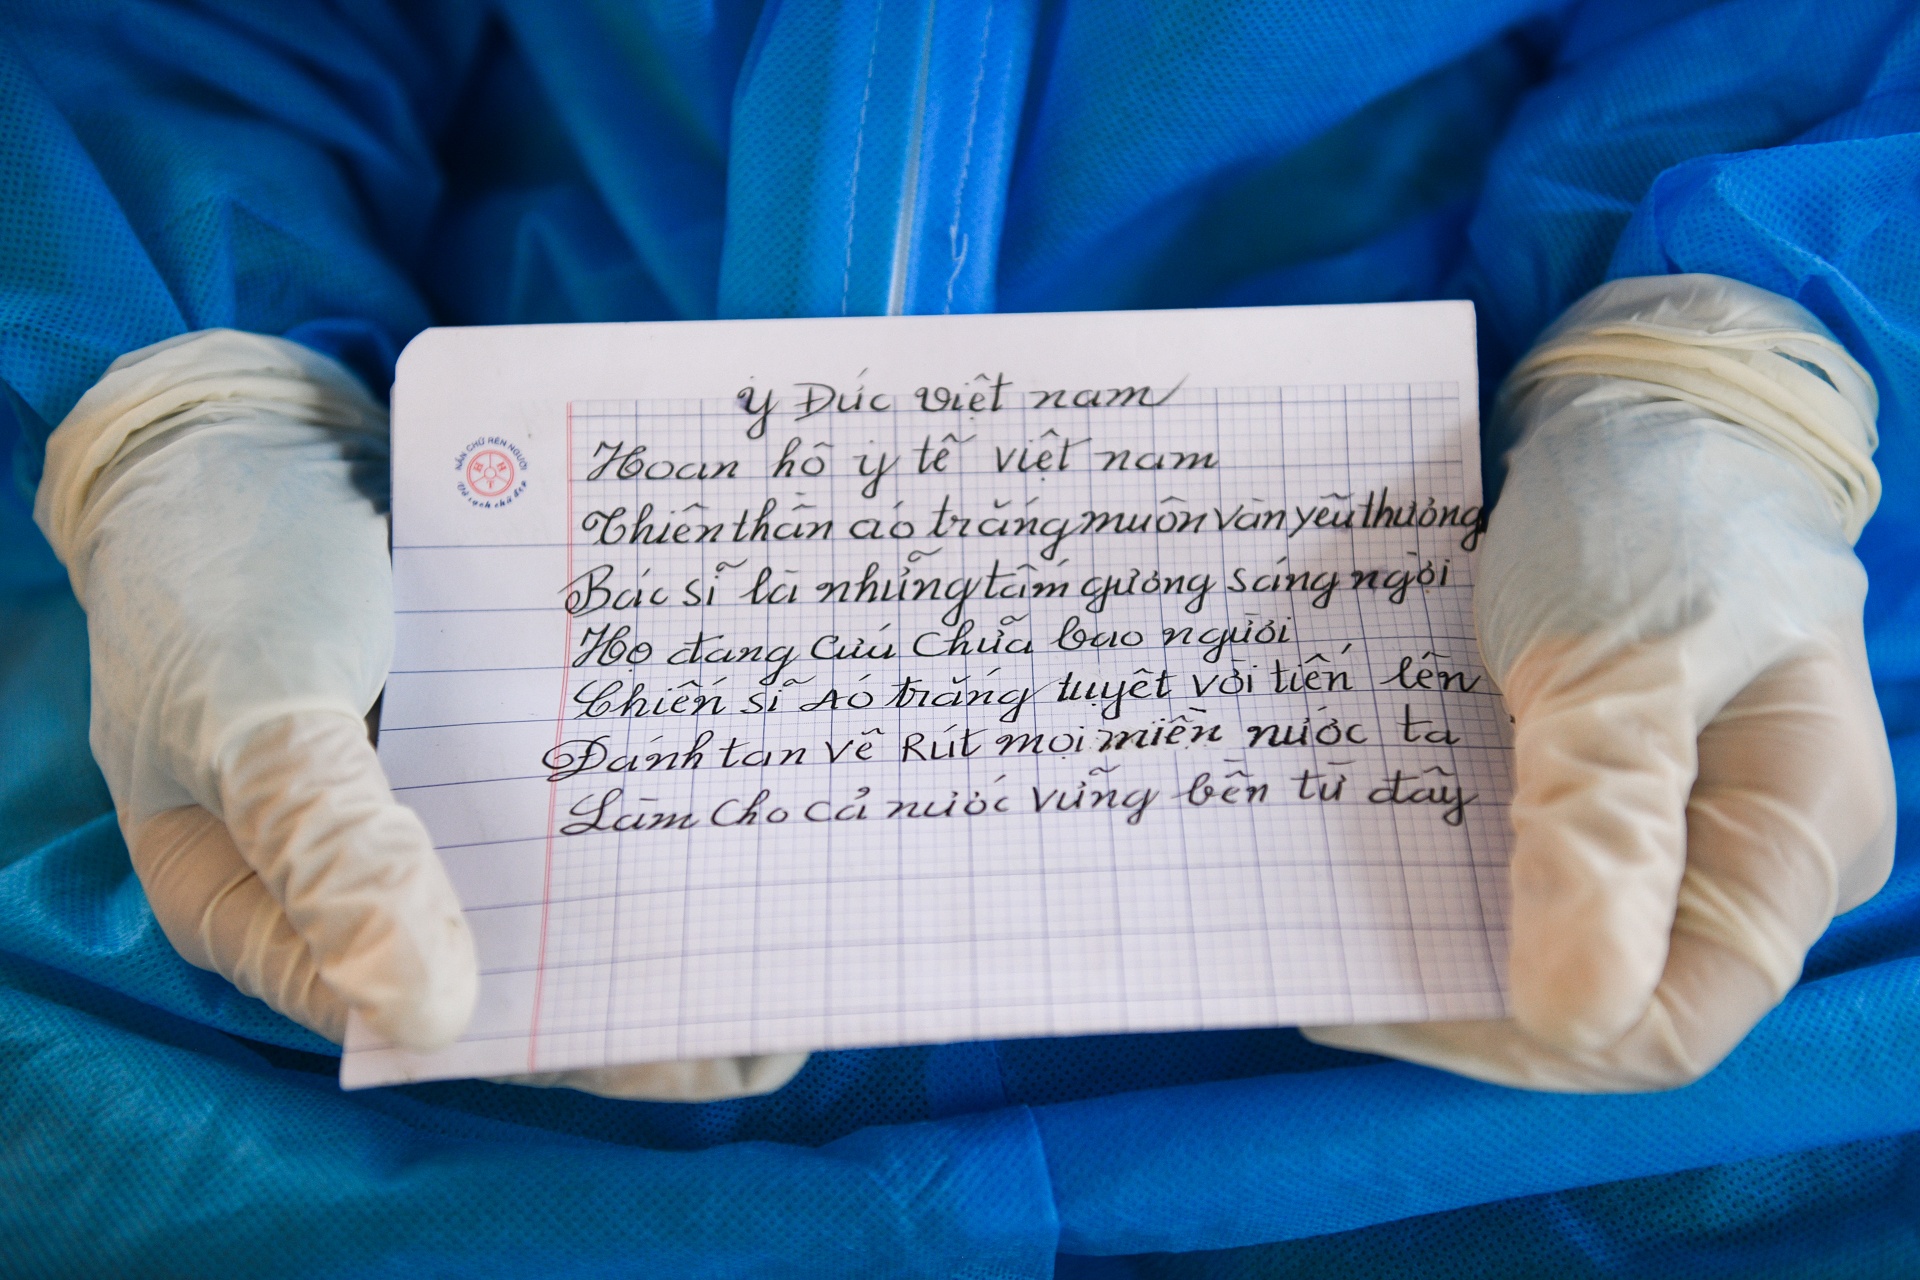 Y Đức Việt nam
Hoan hô y tế Việt nam
Thiên thần áo trắng muôn vàn yêu thương
Bác sĩ là những tấm gương sáng ngời
Họ đang cứu chữa bao người
Chiến sĩ Áo trắng tuyệt vời tiến lên
Đánh tan Vê Rút mọi miền nước ta
Làm cho cả nước vững bền từ đây
NẮN CHỮ RÈN NGƯỜI
Vở sạch chữ đẹp